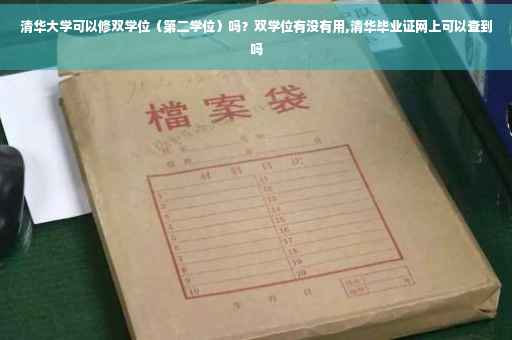 清华大学可以修双学位（第二学位）吗？双学位有没有用,清华毕业证网上可以查到
吗
檔案袋
材料目次
1 11
2 12
3 13
4 14
5 15
6 16
7 17
8 18
9 19
10 20
年 月 日